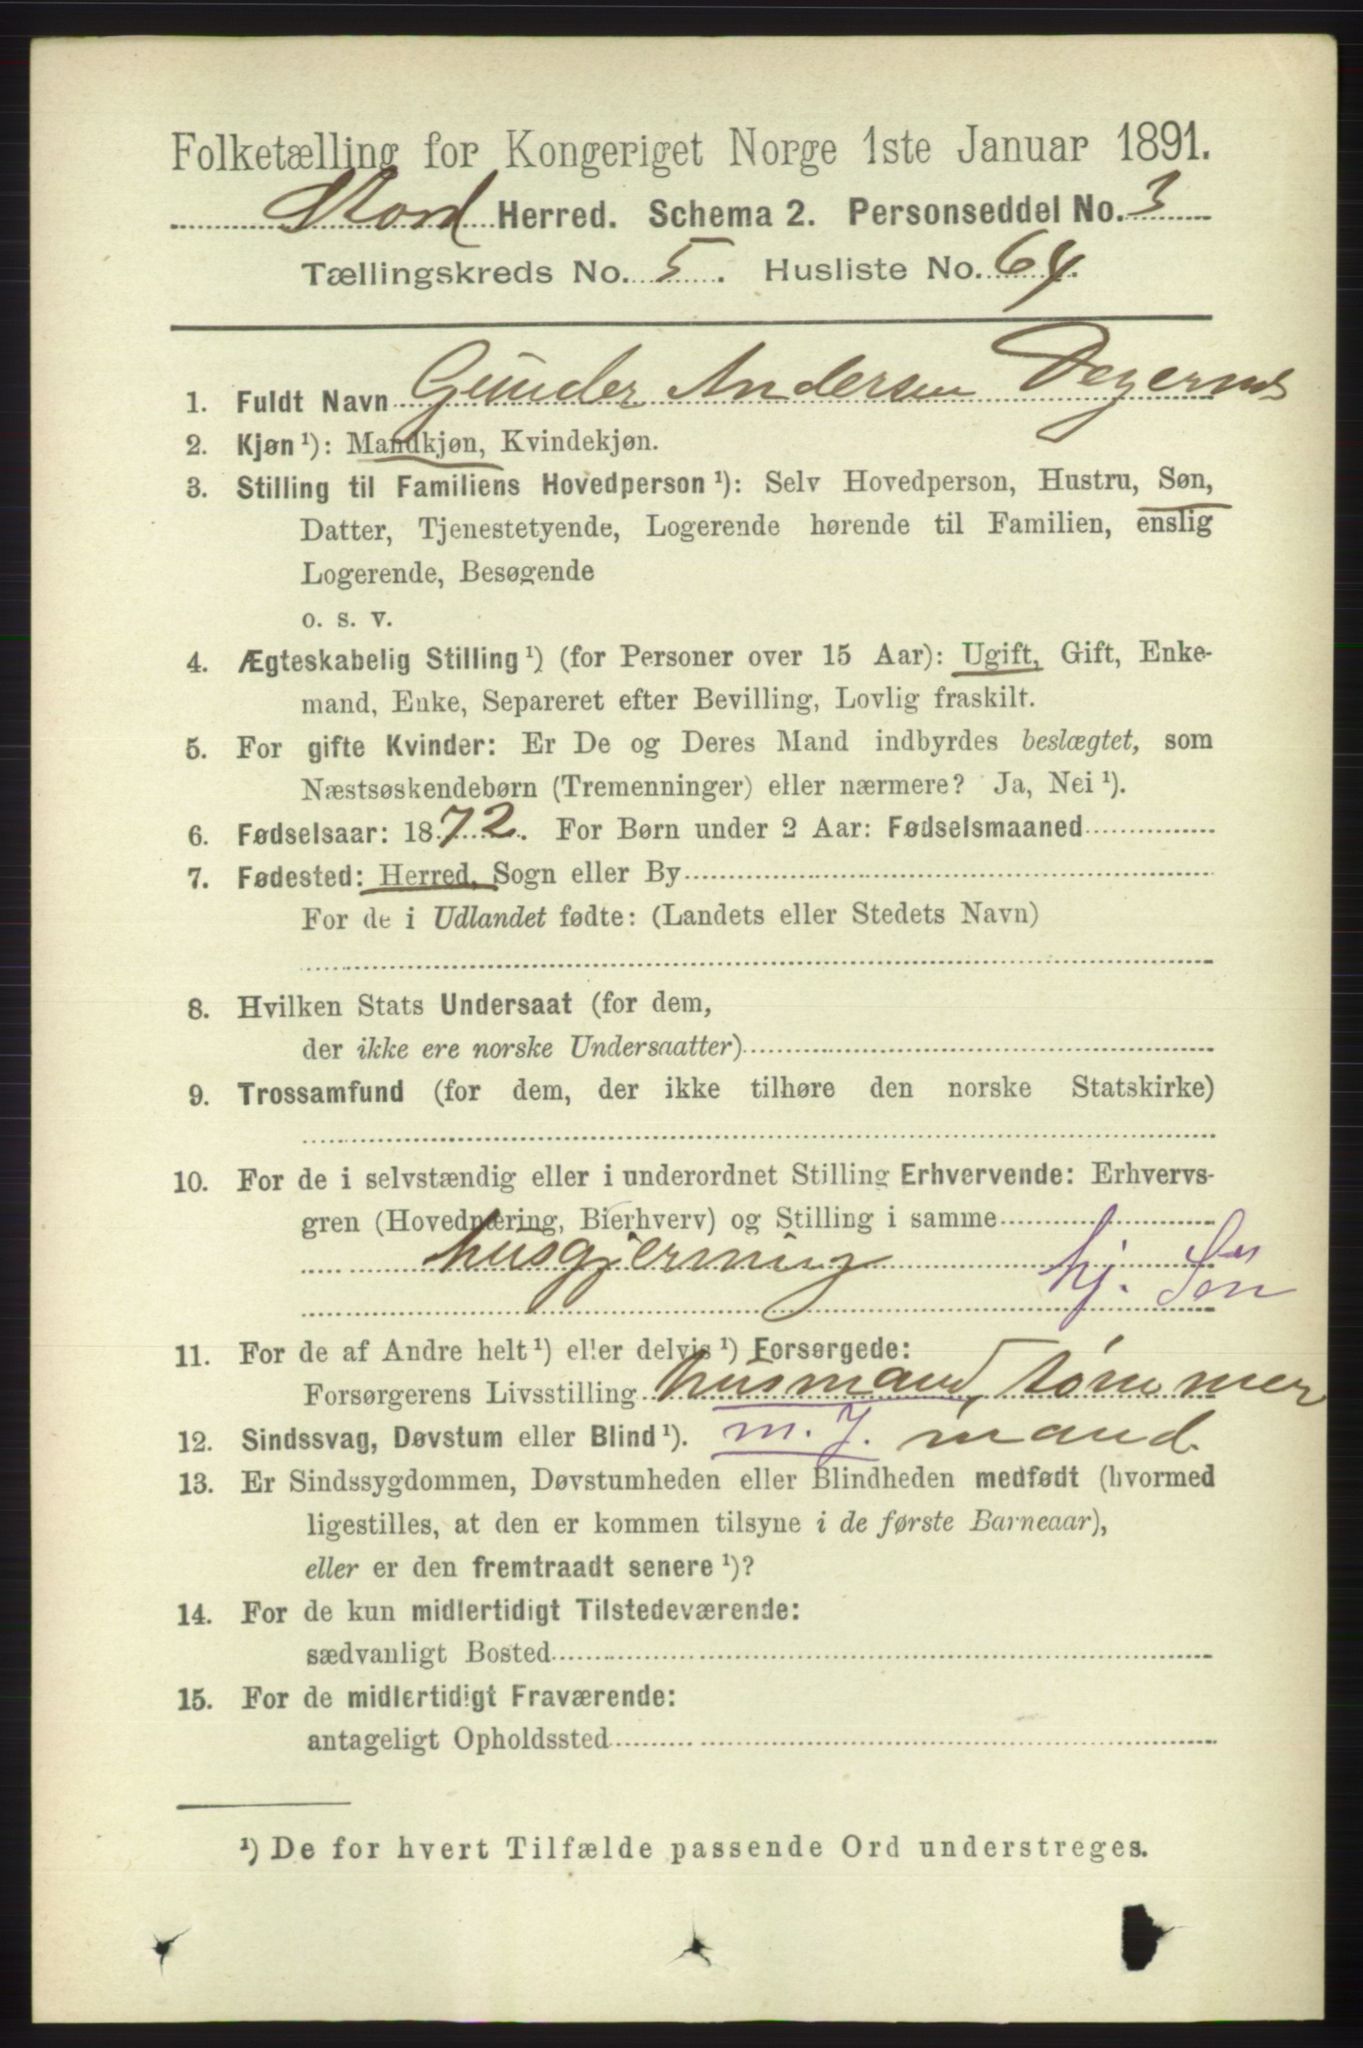 Folketælling for Kongeriget Norge 1ste Januar 1891.
Stord Herred. Schema 2. Personseddel No. 3
Tællingskreds No. 5. Husliste No. 64.
1. Fuldt Navn Gunder Andersen Degernes
2. Kjøn ¹): Mandkjøn, Kvindekjøn.
3. Stilling til Familiens Hovedperson ¹): Selv Hovedperson, Hustru, Søn,
Datter, Tjenestetyende, Logerende hørende til Familien, enslig
Logerende, Besøgende
o. s. v.
4. Ægteskabelig Stilling ¹) (for Personer over 15 Aar): Ugift, Gift, Enke-
mand, Enke, Separeret efter Bevilling, Lovlig fraskilt.
5. For gifte Kvinder: Er De og Deres Mand indbyrdes beslægtet, som
Næstsøskendebørn (Tremenninger) eller nærmere? Ja, Nei ¹).
6. Fødselsaar: 1872. For Børn under 2 Aar: Fødselsmaaned
7. Fødested: Herred, Sogn eller By
For de i Udlandet fødte: (Landets eller Stedets Navn)
8. Hvilken Stats Undersaat (for dem,
der ikke ere norske Undersaatter)
9. Trossamfund (for dem, der ikke tilhøre den norske Statskirke)
10. For de i selvstændig eller i underordnet Stilling Erhvervende: Erhvervs-
gren (Hovednæring, Bierhverv) og Stilling i samme
husgjerning hj. Søn
11. For de af Andre helt ¹) eller delvis ¹) Forsørgede:
Forsørgerens Livsstilling husmand, tømmer
12. Sindssvag, Døvstum eller Blind ¹). m. J. mand.
13. Er Sindssygdommen, Døvstumheden eller Blindheden medfødt (hvormed
ligestilles, at den er kommen tilsyne i de første Barneaar),
eller er den fremtraadt senere ¹)?
14. For de kun midlertidigt Tilstedeværende:
sædvanligt Bosted
15. For de midlertidigt Fraværende:
antageligt Opholdssted
¹) De for hvert Tilfælde passende Ord understreges.